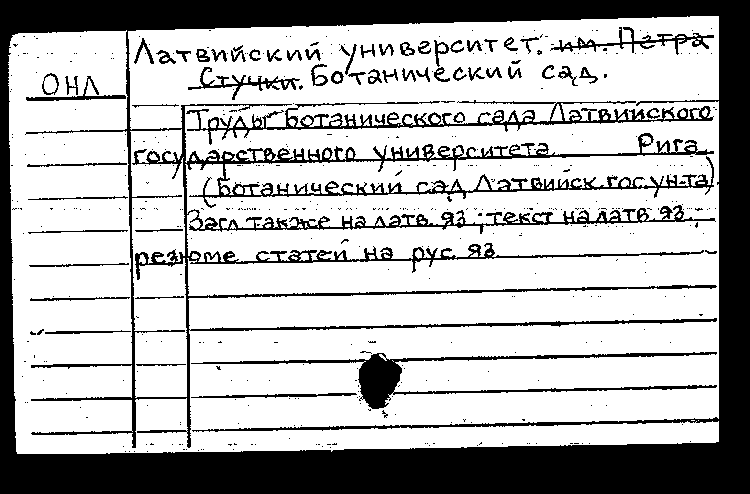 Латвийский университет. им. Петра
ОНЛ
Стучки. Ботанический сад.
Труды Ботанического сада Латвийского
государственного университета Рига
(Ботанический сад Латвийск. гос. ун-та).
Загл также на латв. яз; текст на латв. яз.;
резюме статей на рус. яз